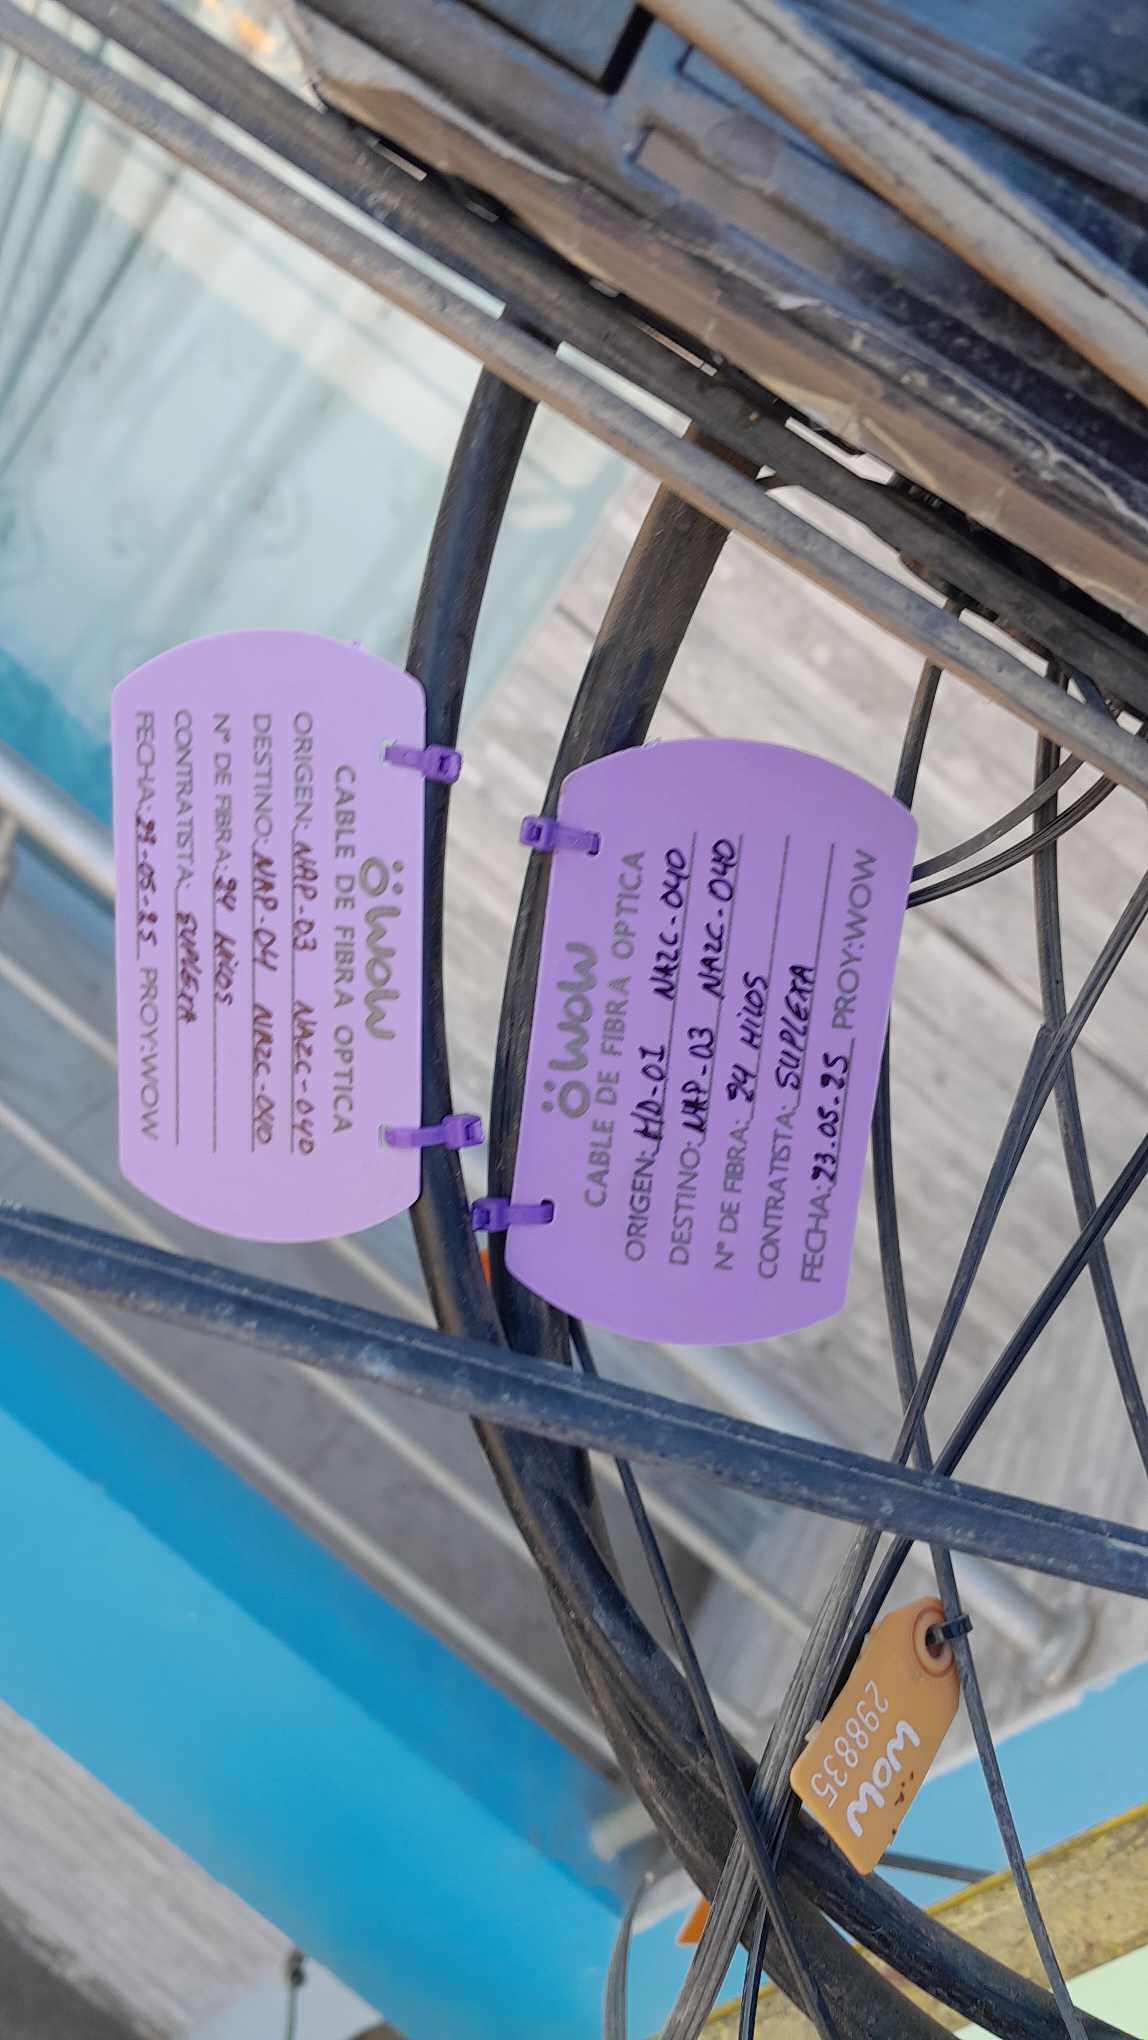 wow
CABLE DE FIBRA OPTICA
ORIGEN: NAP-03 NAZC-040
DESTINO: NAP-04 NAZC-040
N° DE FIBRA: 24 HILOS
CONTRATISTA: SUPLEXA
FECHA: 23-05-25 PROY:WOW
wow
CABLE DE FIBRA OPTICA
ORIGEN: HD-01 NAZC-040
DESTINO: NAP-03 NAZC-040
N° DE FIBRA: 24 HILOS
CONTRATISTA: SUPLEXA
FECHA: 23.05.25 PROY:WOW
wow
298835